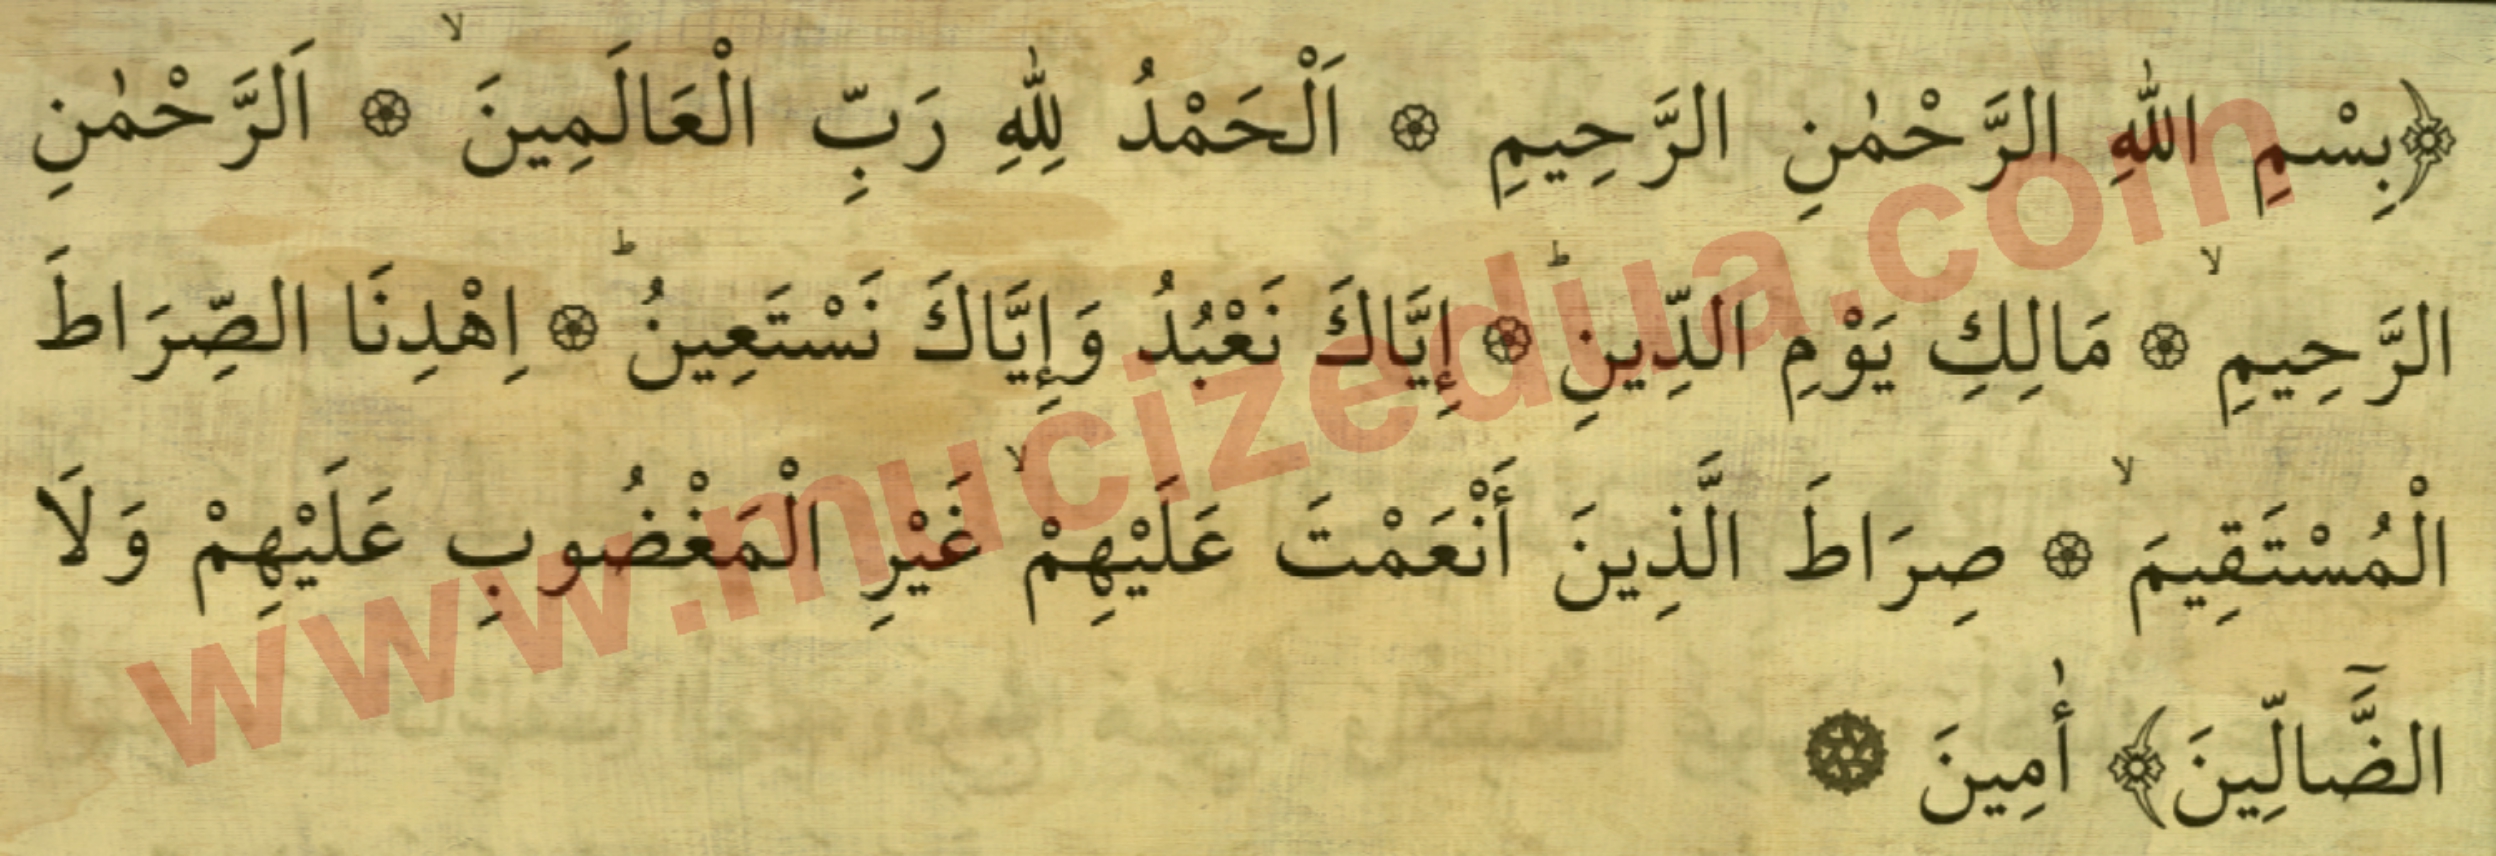 ﴿بِسْمِ اللّٰهِ الرَّحْمٰنِ الرَّحِيمِ ۞ اَلْحَمْدُ لِلّٰهِ رَبِّ الْعَالَمِينَۙ ۞ اَلرَّحْمٰنِ
الرَّحِيمِۙ ۞ مَالِكِ يَوْمِ الدِّينِؕ ۞ إِيَّاكَ نَعْبُدُ وَإِيَّاكَ نَسْتَعِينُؕ ۞ اِهْدِنَا الصِّرَاطَ
الْمُسْتَقِيمَۙ ۞ صِرَاطَ الَّذِينَ أَنْعَمْتَ عَلَيْهِمْۙ غَيْرِ الْمَغْضُوبِ عَلَيْهِمْ وَلَا
الضَّٓالِّينَ﴾ أٰمِينَ
www.mucizedua.com